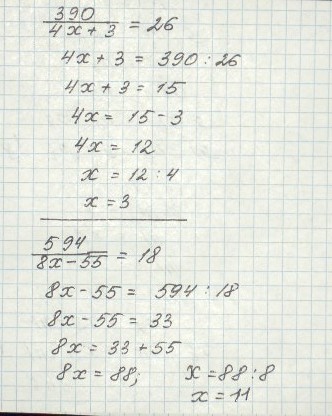 390
4x + 3 = 26
4x + 3 = 390 : 26
4x + 3 = 15
4x = 15 - 3
4x = 12
x = 12 : 4
x = 3
594
8x - 55 = 18
8x - 55 = 594 : 18
8x - 55 = 33
8x = 33 + 55
8x = 88; x = 88 : 8
x = 11